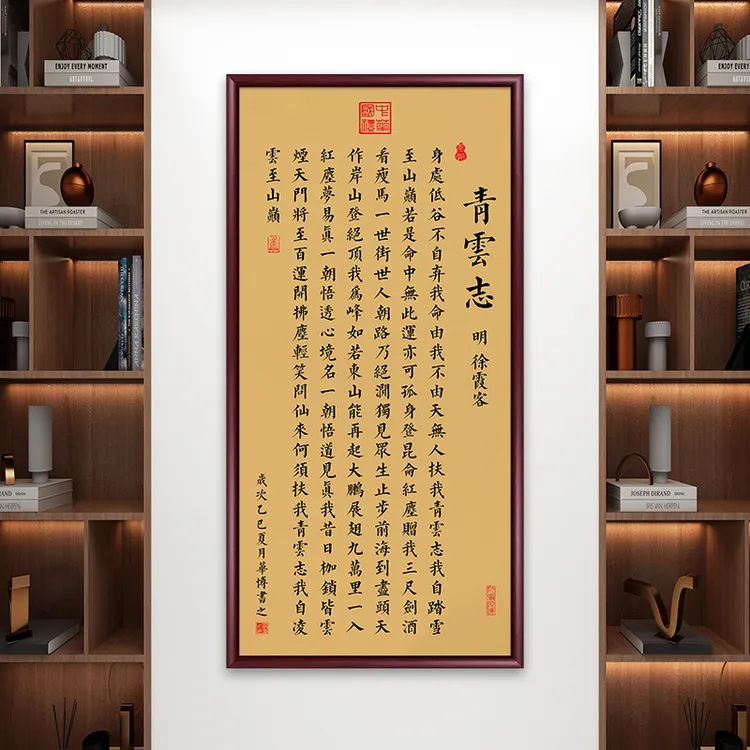 青雲志
明 徐霞客
身處低谷不自弃我命由我不由天無人扶我青雲志我自踏雪
至山巔若是命中無此運亦可孤身登昆侖紅塵贈我三尺劍酒
看瘦馬一世街世人朝路乃絕澗獨見眾生止步前海到盡頭天
作岸山登絕頂我爲峰如若東山能再起大鵬展翅九萬里一入
紅塵夢易眞一朝悟透心境名一朝悟道見眞我昔日枷鎖皆雲
煙天門將至百運開拂塵輕笑問仙來何須扶我青雲志我自凌
雲至山巔
歲次乙巳夏月華博書之
ENJOY EVERY MOMENT
THE ARTISAN ROASTER
IRIS VAN HERPEN
ENJOY EVERY
THE ARTISAN ROASTER
JOSEPH DIRAND
IRIS VAN HERPEN